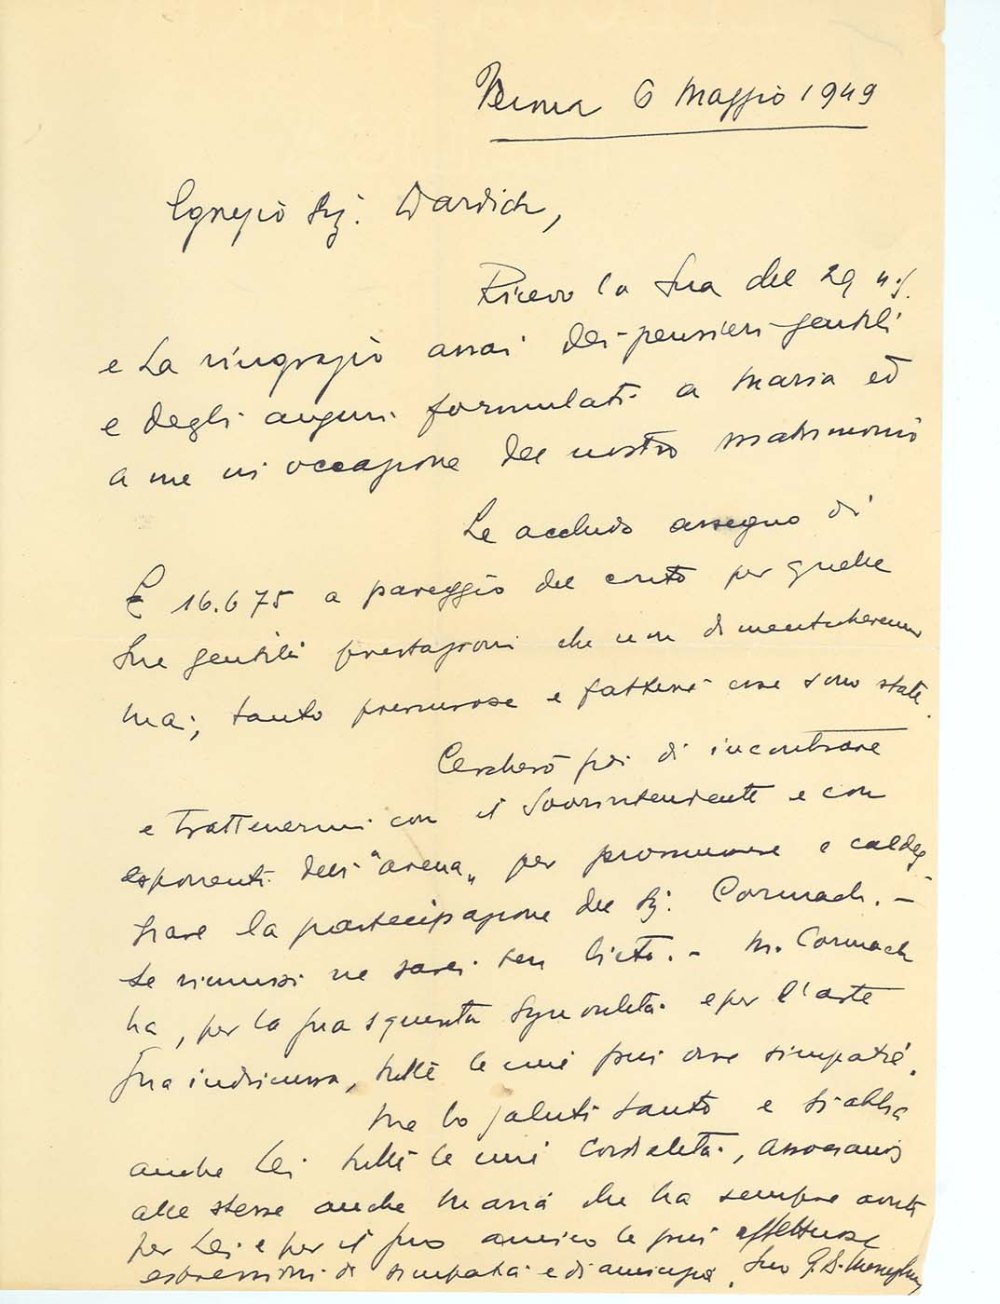 Verona 6 Maggio 1949
Egregio Sig. Wardich,
Ricevo la Sua del 29 u.s.
e La ringrazio assai dei pensieri gentili
e degli auguri formulati a Maria ed
a me in occasione del nostro matrimonio
Le accludo assegno di
£ 16.675 a pareggio del conto per quelle
Sue gentili prestazioni che non dimenticheremo
mai, tanto premurose e fattive esse sono state.
Cercherò poi di incontrare
e trattenermi con il Sovrintendente e con
esponenti dell'"arena" per promuovere e caldeg
giare la partecipazione del Sig. Cormach. -
Se riuscissi ne sarei ben lieto. - M. Cormach
ha, per la sua squisita signorilità e per l'arte
Sua indiscussa, tutte le mie più vive simpatie.
Me lo saluti tanto e si abbia
anche Lei tutte le mie cordialità, associandosi
alle stesse anche Maria che ha sempre avuto
per Lei e per il suo amico le più affettuose
espressioni di simpatia e di amicizia. Suo G.B. Meneghini